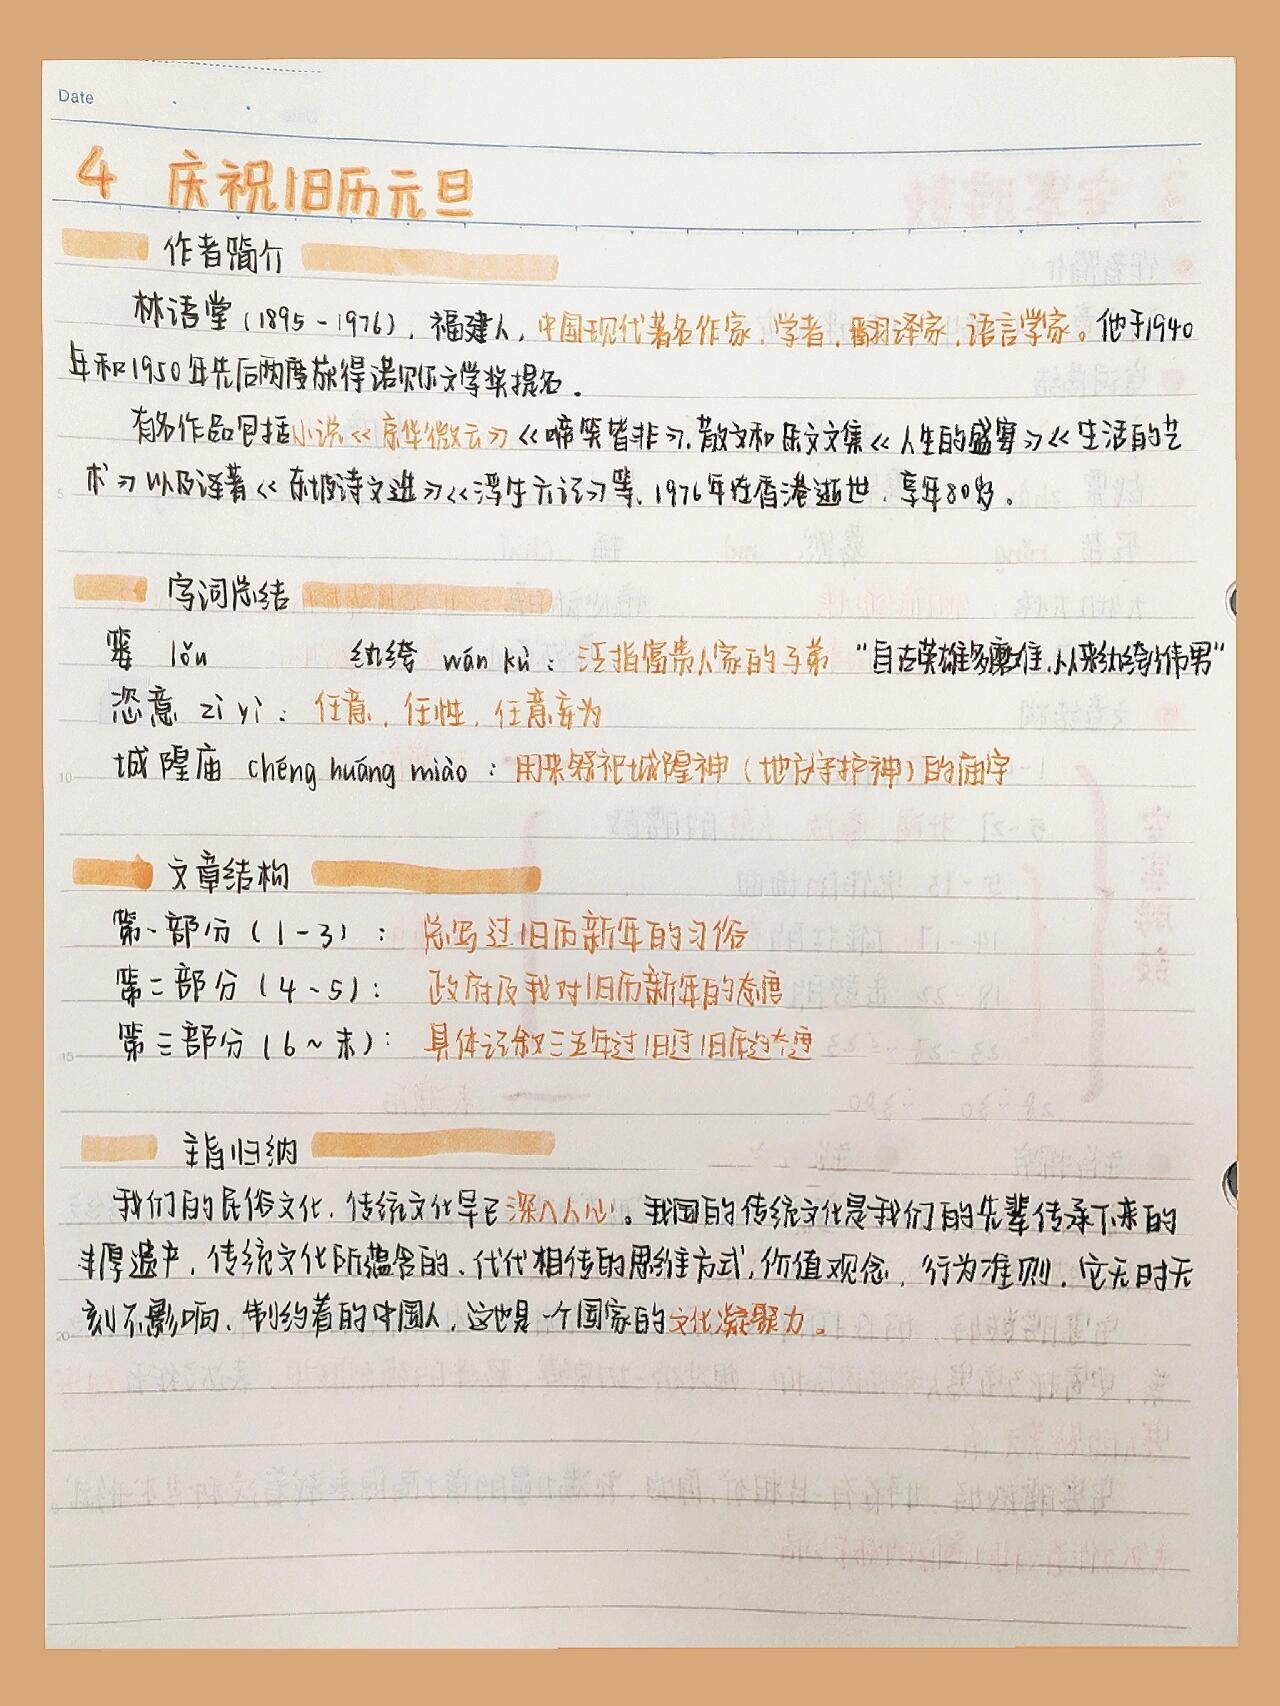 Date
4 庆祝旧历元旦
作者简介
林语堂(1895-1976), 福建人, 中国现代著名作家, 学者, 翻译家, 语言学家。他于1940
年和1950年先后两度获得诺贝尔文学奖提名.
有名作品包括小说《京华微云》《啼笑皆非》, 散文和杂文文集《人生的盛宴》《生活的艺
术》以及译著《东坡诗文选》《浮生六记》等. 1976年在香港逝世, 享年80岁。
字词总结
篓 lǒu 纨绔 wán kù: 泛指富贵人家的子弟 "自古英雄多磨难,从来纨绔少伟男"
恣意 zì yì: 任意, 任性, 任意妄为
城隍庙 chéng huáng miào: 用来祭祀城隍神(地方守护神)的庙宇
文章结构
第一部分(1-3): 总写过旧历新年的习俗
第二部分(4-5): 政府及我对旧历新年的态度
第三部分(6~末): 具体记叙三五年过旧过旧历
主旨归纳
我们的民俗文化, 传统文化早已深入人心。我国的传统文化是我们的先辈传承下来的
丰厚遗产, 传统文化所蕴含的、代代相传的思维方式, 价值观念, 行为准则, 它无时无
刻不影响、制约着的中国人, 这也是一个国家的文化凝聚力。
5
10
15
20